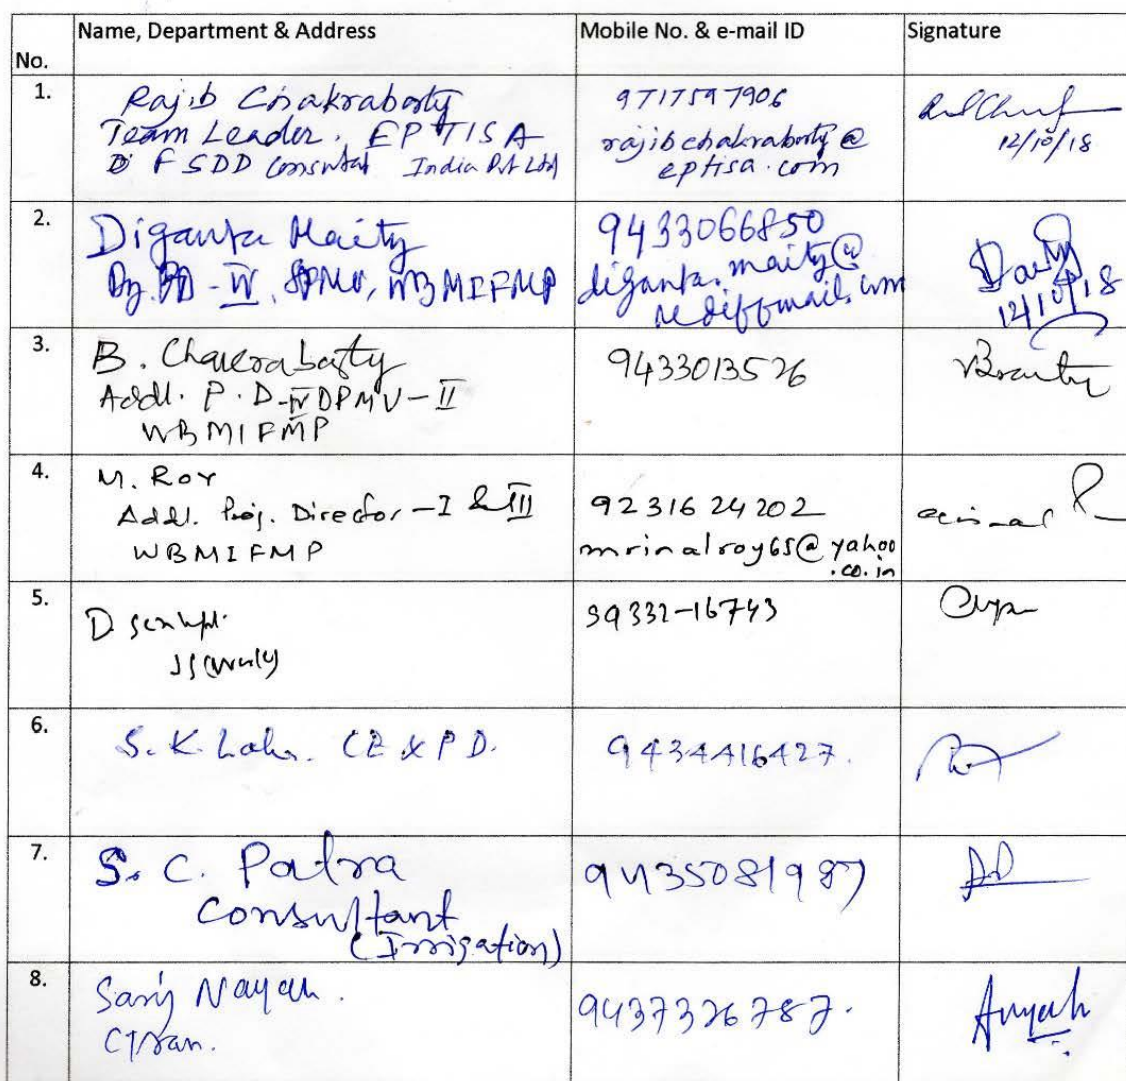 No.
Name, Department & Address
Mobile No. & e-mail ID
Signature
1.
Rajib Chakraborty
Team Leader, EPTISA
FSDD Consultat India Pvt Ltd
9717597906
rajibchakraborty@
eptisa.com
12/10/18
2.
Diganta Maity
Dy. PD - IV, SPMU, WBMIFMP
9433066850
diganta.maity@
rediffmail.com
12/10/18
3.
B. Chakraborty
Addl. P. D-IV DPMU-II
WBMIFMP
9433013526
4.
M. Roy
Addl. Proj. Director-I & III
WBMIFMP
9231624202
mrinalroy65@yahoo
.co.in
5.
D.
99332-16743
6.
S. K. CE & PD.
9434416427.
7.
S. C. Patra
Consultant
(Irrigation)
9435081987
8.
Saroj Nayak.
CTran.
9437326787.